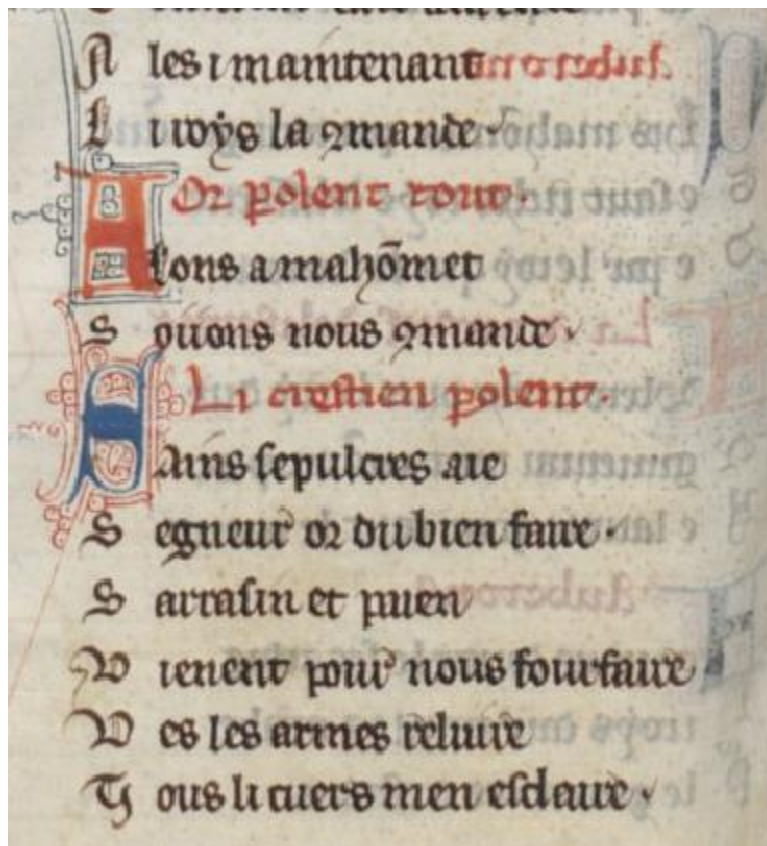 A les i maintenant
L i roys la ꝯmande.
Or polent tout.
A lons a mahōmet
S ouons nous ꝯmande.
Li crestien polent.
S ains sepulcres aie
S egneur or du bien faire.
S arrasin et paien
V ienent pour nous fourfaire
V es les armes reluire
T ous li cuers men esclaire.